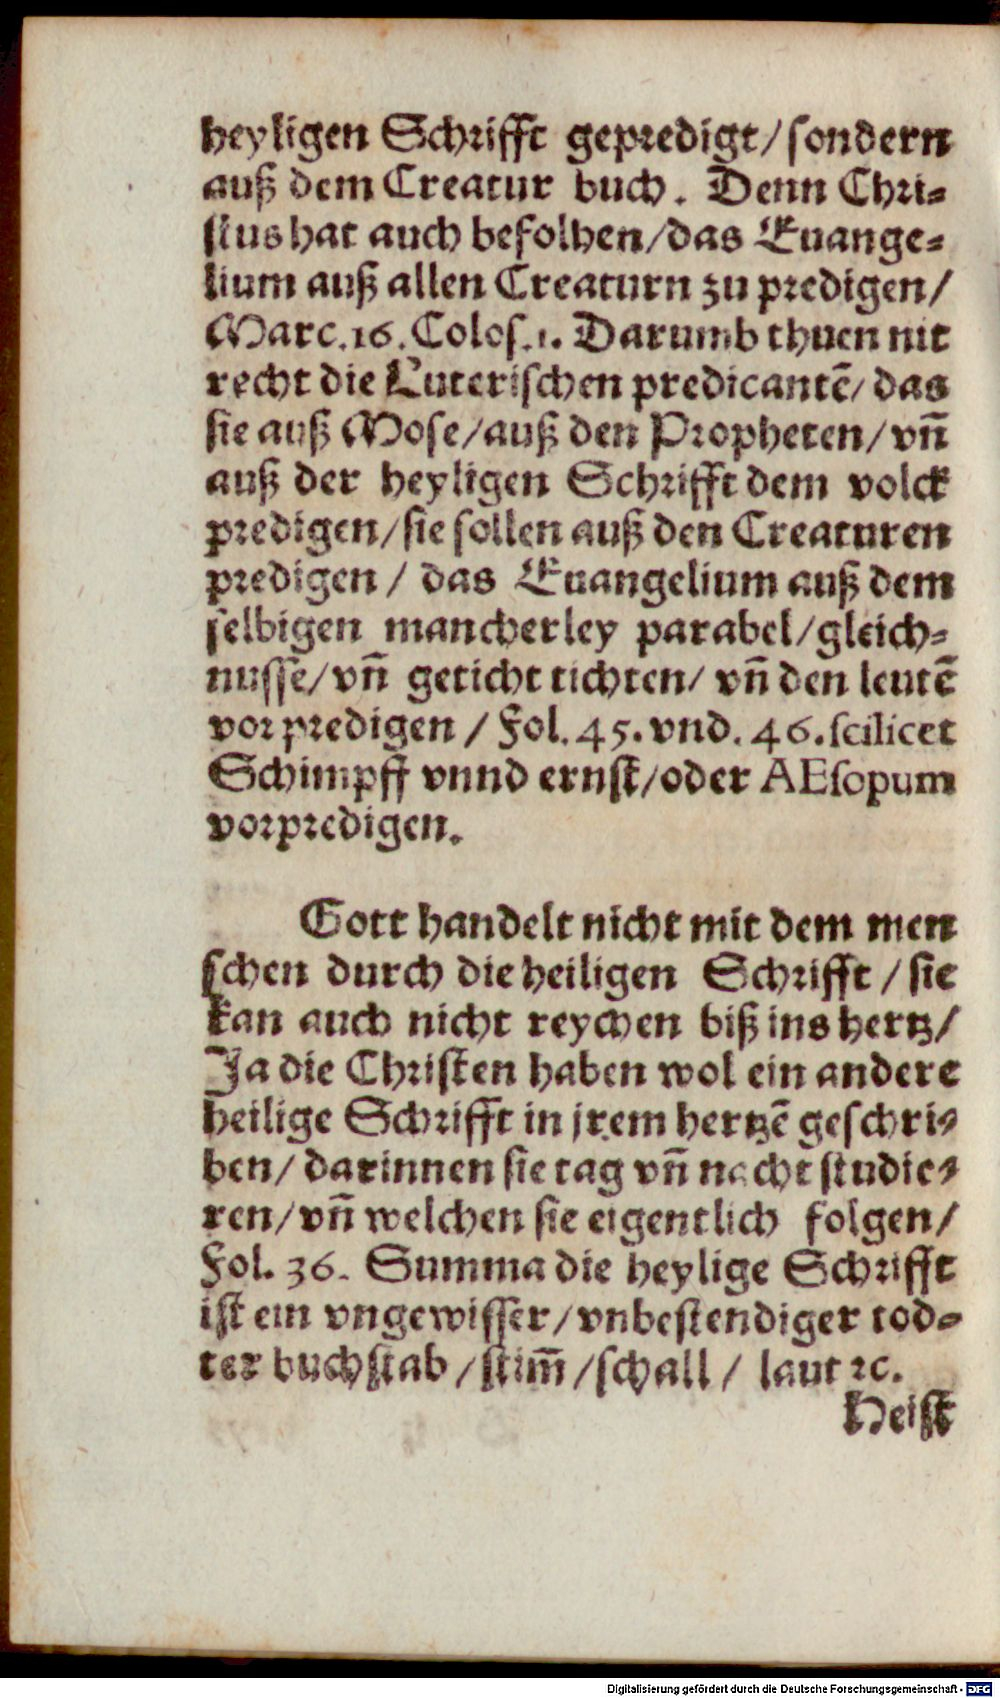 heyligen Schrifft gepredigt/sondern
auß dem Creatur buch. Denn Chri⸗
stus hat auch befolhen/das Euange⸗
lium auß allen Creaturn zu predigen/
Marc.16.Colos.1. Darumb thuen nit
recht die Luterischen predicantẽ/das
sie auß Mose/auß den Propheten/vñ
auß der heyligen Schrifft dem volck
predigen/sie sollen auß den Creaturen
predigen/ das Euangelium auß dem
selbigen mancherley parabel/gleich⸗
nusse/vñ geticht tichten/ vñ den leutẽ
vorpredigen / Fol. 45. vnd. 46. scilicet
Schimpff vnnd ernst/oder AEsopum
vorpredigen.
Gott handelt nicht mit dem men
schen durch die heiligen Schrifft / sie
kan auch nicht reychen biß ins hertz/
Ja die Christen haben wol ein andere
heilige Schrifft in jrem hertzẽ geschri⸗
ben/ darinnen sie tag vñ nacht studie⸗
ren/vñ welchen sie eigentlich folgen/
Fol. 36. Summa die heylige Schrifft
ist ein vngewisser/vnbestendiger tod⸗
ter buchstab /stim̃ /schall / laut ꝛc.
Heist
Digitalisierung gefördert durch die Deutsche Forschungsgemeinschaft - DFG